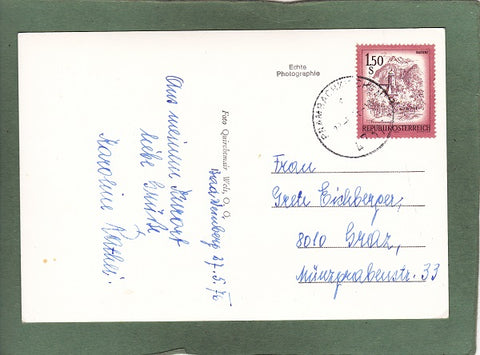 Echte
Photographie
1.50
S
REPUBLIK ÖSTERREICH
Aus meinem Kurort
liebe Grüße
Karoline
Foto Quirchmair Wels, O. Ö.
27.5.76
Frau
Grete Eichberger,
8010 Graz,
Münzgrabenstr. 33